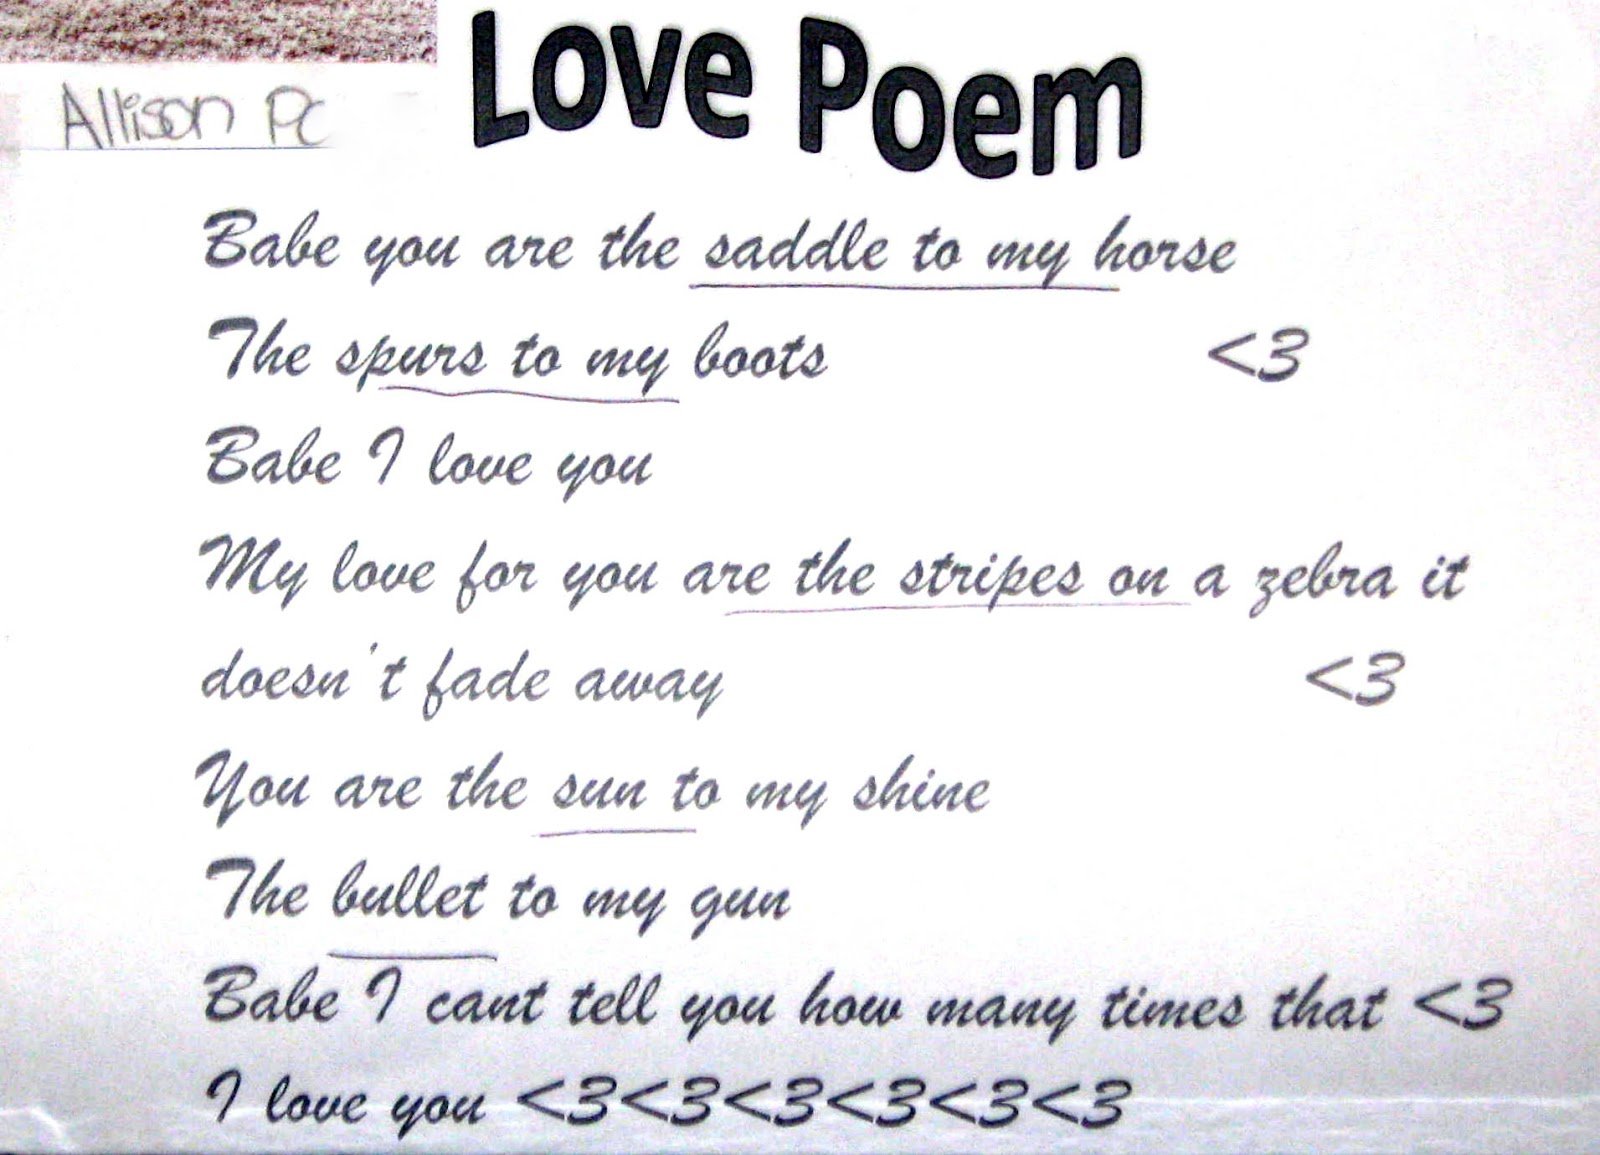 Love Poem
Allison Pc
Babe you are the saddle to my horse
The spurs to my boots <3
Babe I love you
My love for you are the stripes on a zebra it
doesn't fade away <3
You are the sun to my shine
The bullet to my gun
Babe I cant tell you how many times that <3
I love you <3<3<3<3<3<3